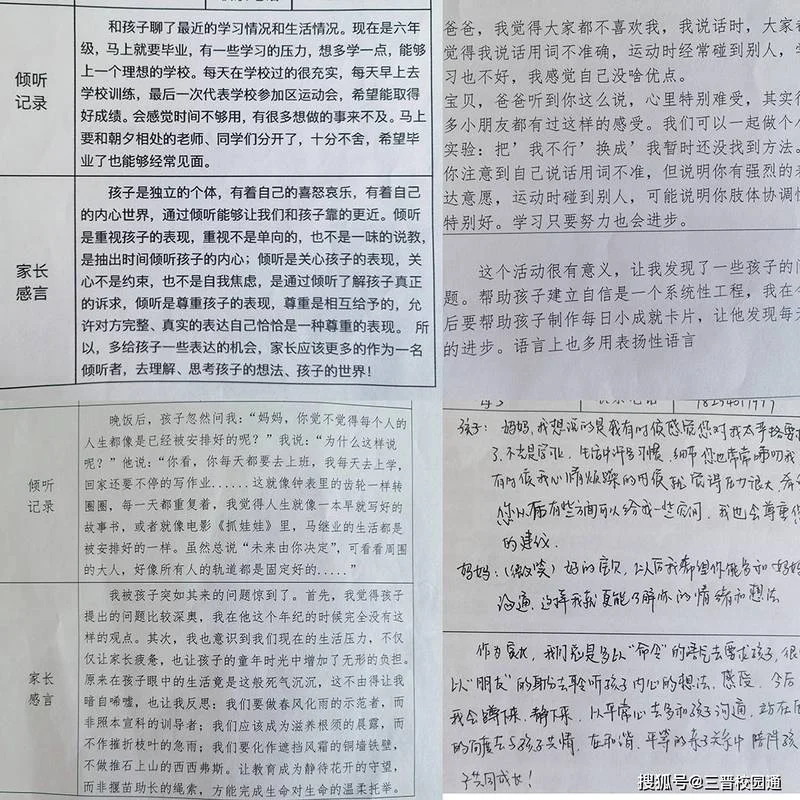 倾听
记录
和孩子聊了最近的学习情况和生活情况。现在是六年
级，马上就要毕业，有一些学习的压力，想多学一点，能够
上一个理想的学校。每天在学校过的很充实，每天早上去
学校训练，最后一次代表学校参加区运动会，希望能取得
好成绩。会感觉时间不够用，有很多想做的事来不及。马上
要和朝夕相处的老师、同学们分开了，十分不舍，希望毕
业了也能够经常见面。
家长
感言
孩子是独立的个体，有着自己的喜怒哀乐，有着自己
的内心世界，通过倾听能够让我们和孩子靠的更近。倾听
是重视孩子的表现，重视不是单向的，也不是一味的说教，
是抽出时间倾听孩子的内心；倾听是关心孩子的表现，关
心不是约束，也不是自我焦虑，是通过倾听了解孩子真正
的诉求，倾听是尊重孩子的表现，尊重是相互给予的，允
许对方完整、真实的表达自己恰恰是一种尊重的表现。 所
以，多给孩子一些表达的机会，家长应该更多的作为一名
倾听者，去理解、思考孩子的想法、孩子的世界！
爸爸，我觉得大家都不喜欢我，我说话时，大家
觉得我说话用词不准确，运动时经常碰到别人，
习也不好，我感觉自己没啥优点。
宝贝，爸爸听到你这么说，心里特别难受，其实很
多小朋友都有过这样的感受。我们可以一起做个小
实验：把’我不行’换成’我暂时还没找到方法。
你注意到自己说话用词不准，但说明你有强烈的表
达意愿，运动时碰到别人，可能说明你肢体协调性
特别好。学习只要努力也会进步。
这个活动很有意义，让我发现了一些孩子的问
题。帮助孩子建立自信是一个系统性工程，我在今
后要帮助孩子制作每日小成就卡片，让他发现每天
的进步。语言上也多用表扬性语言
倾听
记录
晚饭后，孩子忽然问我：“妈妈，你觉不觉得每个人的
人生都像是已经被安排好的呢？”我说：“为什么这样说
呢？”他说：“你看，你每天都要去上班，我每天去上学，
回家还要不停的写作业......这就像钟表里的齿轮一样转
圈圈，每一天都重复着，我觉得人生就像一本早就写好的
故事书，或者就像电影《抓娃娃》里，马继业的生活都是
被安排好的一样。虽然总说“未来由你决定”，可看看周围
的大人，好像所有人的轨道都是固定好的.....”
家长
感言
我被孩子突如其来的问题惊到了。首先，我觉得孩子
提出的问题比较深奥，我在他这个年纪的时候完全没有这
样的观点。其次，我也意识到我们现在的生活压力，不仅
仅让家长疲惫，也让孩子的童年时光中增加了无形的负担。
原来在孩子眼中的生活竟是这般死气沉沉，这不由得让我
暗自唏嘘，也让我反思：我们要做春风化雨的示范者，而
非照本宣科的训导者；我们应该成为滋养根须的晨露，而
不作摧折枝叶的急雨；我们要化作遮挡风霜的铜墙铁壁，
不做推石上山的西西弗斯。让教育成为静待花开的守望，
而非揠苗助长的绳索，方能完成生命对生命的温柔托举。
孩子：妈妈，我想说的是我有时候感觉您对我太严格要
了，不光是学业，生活中许多习惯、细节您也常常唠叨我
有时候我心情烦躁的时候就觉得压力很大，希
您以后有些方面可以给我一些空间，我也会尊重您
的建议。
妈妈：（微笑）好的宝贝，以后我希望你能多和妈妈
沟通，这样我就更能了解你的情绪和想法
作为家长，我们总是多以“命令”的语气去要求孩子，很
以“朋友”的身份去聆听孩子内心的想法、感受，今后
我会蹲下来、静下来，以平常心去多和孩子沟通，站在
的角度去与孩子共情，在和谐、平等的亲子关系中陪伴孩
子共同成长！
搜狐号@三晋校园通